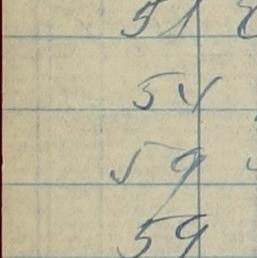 51
54
59
59